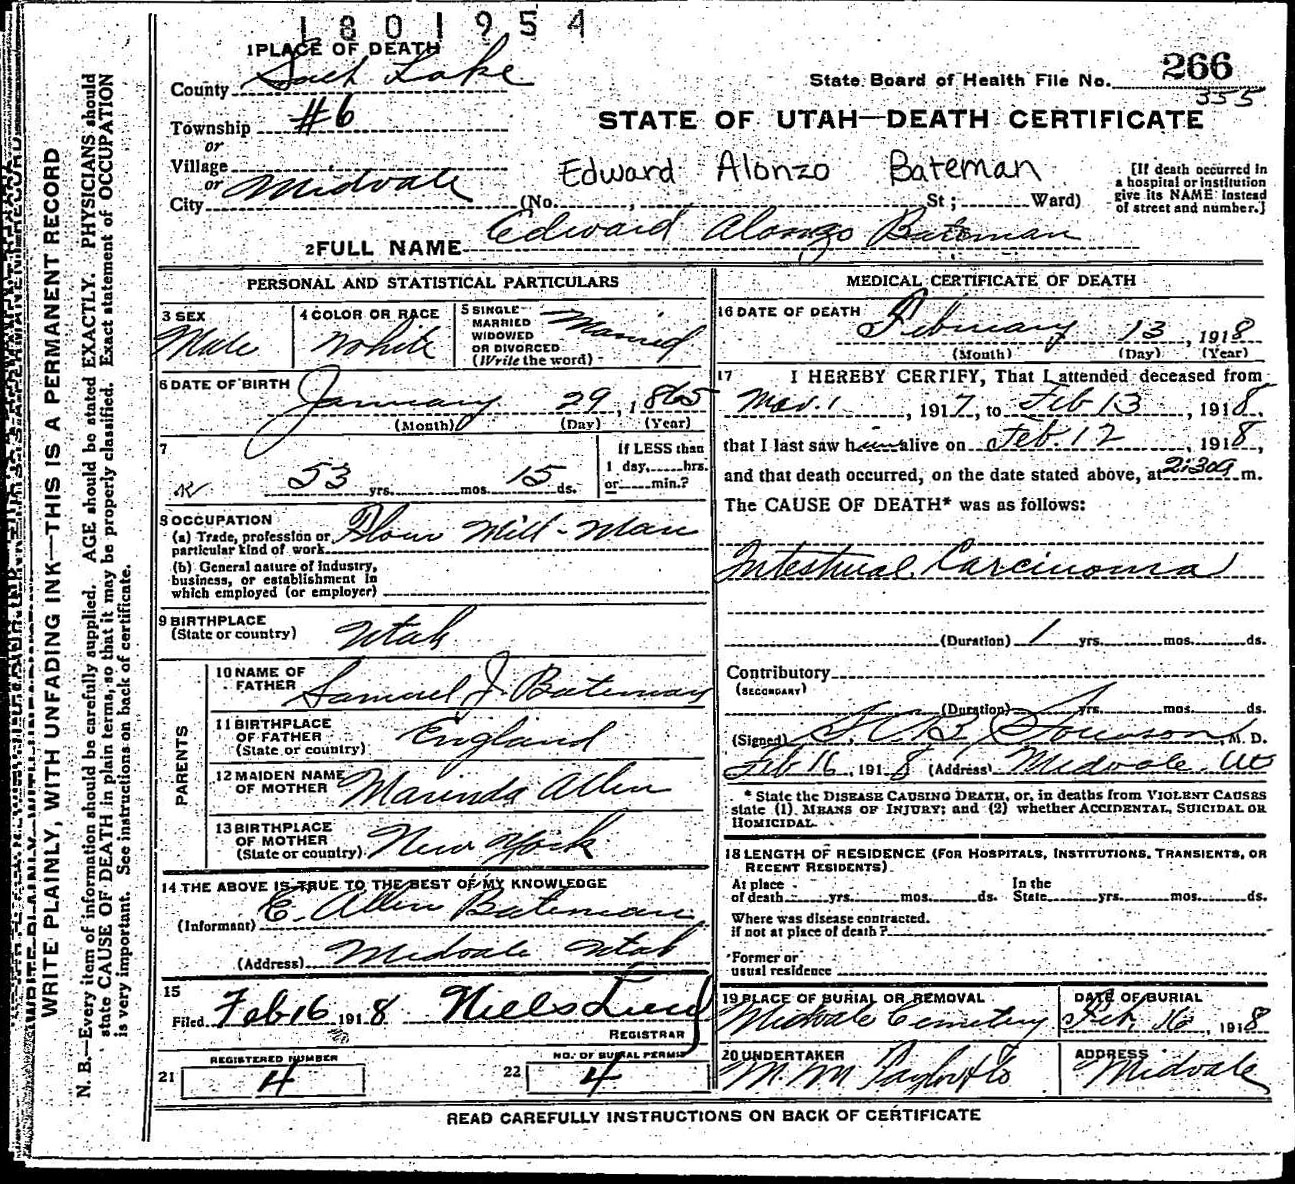 1801954
1 PLACE OF DEATH
County Salt Lake
State Board of Health File No. 266
355
Township #6
STATE OF UTAH—DEATH CERTIFICATE
or
Village
or
City Midvale
Edward Alonzo Bateman
(No. , St; Ward)
[If death occurred in
a hospital or institution
give its NAME instead
of street and number.]
2 FULL NAME Edward Alonzo Bateman
PERSONAL AND STATISTICAL PARTICULARS
3 SEX
Male
4 COLOR OR RACE
White
5 SINGLE
MARRIED
WIDOWED
OR DIVORCED
(Write the word)
Married
6 DATE OF BIRTH
January 29, 1865
(Month) (Day) (Year)
7
53 yrs. mos. 15 ds.
If LESS than
1 day, hrs.
or min.?
8 OCCUPATION
(a) Trade, profession or
particular kind of work
Flour Mill-Man
(b) General nature of industry,
business, or establishment in
which employed (or employer)
9 BIRTHPLACE
(State or country)
Utah
PARENTS
10 NAME OF
FATHER
Samuel J. Bateman
11 BIRTHPLACE
OF FATHER
(State or country)
England
12 MAIDEN NAME
OF MOTHER
Marinda Allen
13 BIRTHPLACE
OF MOTHER
(State or country)
New York
14 THE ABOVE IS TRUE TO THE BEST OF MY KNOWLEDGE
(Informant) E. Allen Bateman
(Address) Midvale Utah
15
Filed Feb 16 1918 Niels Lind
REGISTRAR
REGISTERED NUMBER
21 4
NO. OF BURIAL PERMIT
22 4
MEDICAL CERTIFICATE OF DEATH
16 DATE OF DEATH
February 13, 1918
(Month) (Day) (Year)
17 I HEREBY CERTIFY, That I attended deceased from
Mar. 1, 1917, to Feb 13, 1918,
that I last saw him alive on Feb. 12, 1918,
and that death occurred, on the date stated above, at 2:30 a m.
The CAUSE OF DEATH* was as follows:
Intestinal Carcinoma
(Duration) 1 yrs. mos. ds.
Contributory
(SECONDARY)
(Duration) yrs. mos. ds.
(Signed) M. D.
Feb 16, 1918 (Address) Midvale, Ut
* State the DISEASE CAUSING DEATH, or, in deaths from VIOLENT CAUSES
state (1) MEANS OF INJURY; and (2) whether ACCIDENTAL, SUICIDAL OR
HOMICIDAL.
18 LENGTH OF RESIDENCE (FOR HOSPITALS, INSTITUTIONS, TRANSIENTS, OR
RECENT RESIDENTS)
At place
of death yrs. mos. ds.
In the
State yrs. mos. ds.
Where was disease contracted.
if not at place of death?
Former or
usual residence
19 PLACE OF BURIAL OR REMOVAL
Midvale Cemetery
DATE OF BURIAL
Feb. 16, 1918
20 UNDERTAKER
M. M.
ADDRESS
Midvale
READ CAREFULLY INSTRUCTIONS ON BACK OF CERTIFICATE
WRITE PLAINLY, WITH UNFADING INK—THIS IS A PERMANENT RECORD
N. B.—Every item of information should be carefully supplied. AGE should be stated EXACTLY. PHYSICIANS should
state CAUSE OF DEATH in plain terms, so that it may be properly classified. Exact statement of OCCUPATION
is very important. See instructions on back of certificate.